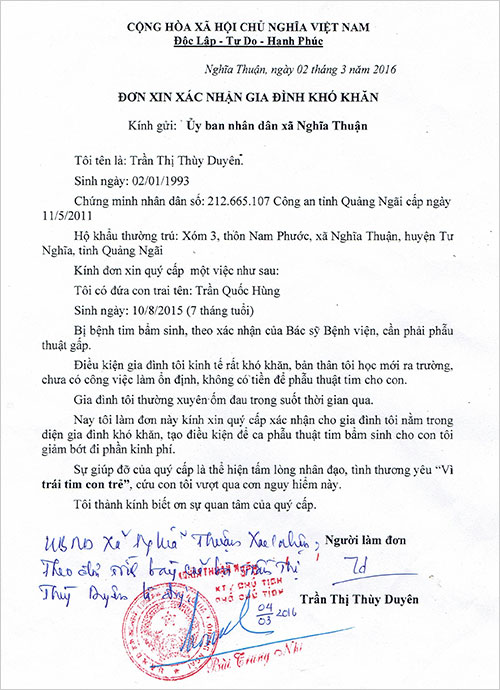 CỘNG HÒA XÃ HỘI CHỦ NGHĨA VIỆT NAM
Độc Lập - Tự Do - Hạnh Phúc
Nghĩa Thuận, ngày 02 tháng 3 năm 2016
ĐƠN XIN XÁC NHẬN GIA ĐÌNH KHÓ KHĂN
Kính gửi: Ủy ban nhân dân xã Nghĩa Thuận
Tôi tên là: Trần Thị Thùy Duyên.
Sinh ngày: 02/01/1993
Chứng minh nhân dân số: 212.665.107 Công an tỉnh Quảng Ngãi cấp ngày
11/5/2011
Hộ khẩu thường trú: Xóm 3, thôn Nam Phước, xã Nghĩa Thuận, huyện Tư
Nghĩa, tỉnh Quảng Ngãi
Kính đơn xin quý cấp một việc như sau:
Tôi có đứa con trai tên: Trần Quốc Hùng
Sinh ngày: 10/8/2015 (7 tháng tuổi)
Bị bệnh tim bẩm sinh, theo xác nhận của Bác sỹ Bệnh viện, cần phải phẫu
thuật gấp.
Điều kiện gia đình tôi kinh tế rất khó khăn, bản thân tôi học mới ra trường,
chưa có công việc làm ổn định, không có tiền để phẫu thuật tim cho con.
Gia đình tôi thường xuyên ốm đau trong suốt thời gian qua.
Nay tôi làm đơn này kính xin quý cấp xác nhận cho gia đình tôi nằm trong
diện gia đình khó khăn, tạo điều kiện để ca phẫu thuật tim bẩm sinh cho con tôi
giảm bớt đi phần kinh phí.
Sự giúp đỡ của quý cấp là thể hiện tấm lòng nhân đạo, tình thương yêu “Vì
trái tim con trẻ”, cứu con tôi vượt qua cơn nguy hiểm này.
Tôi thành kính biết ơn sự quan tâm của quý cấp.
UBND Xã Nghĩa Thuận Xác nhận;
Người làm đơn
Thị
Thùy Duyên
KT/ CHỦ TỊCH
PHÓ CHỦ TỊCH
Trần Thị Thùy Duyên
04
03 2016
Bùi Trung Nhi